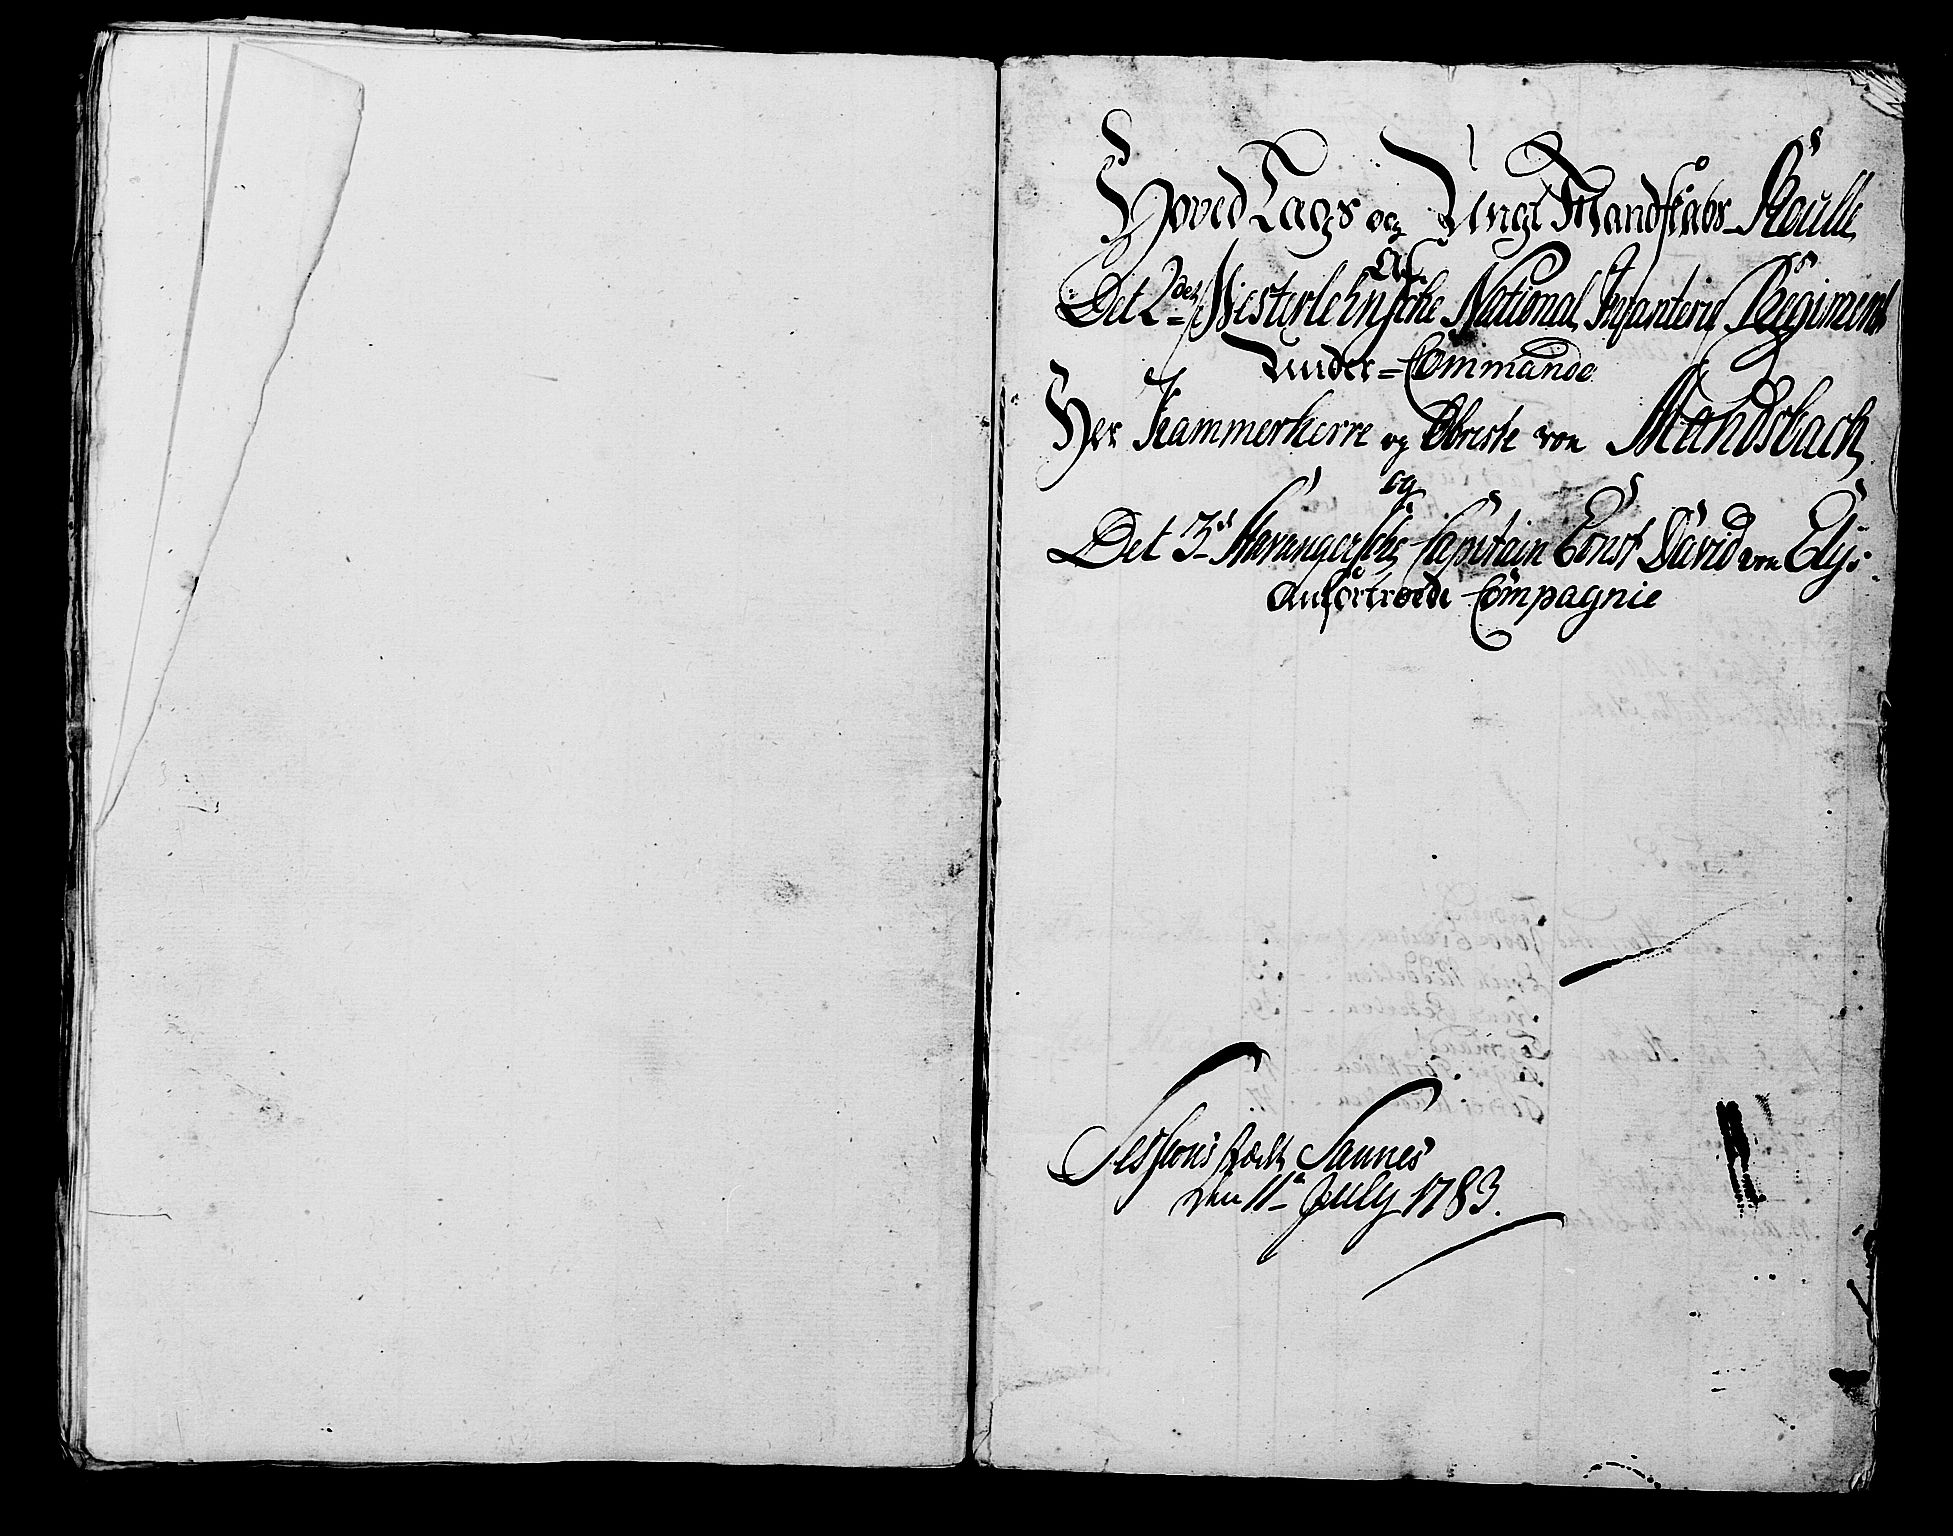 Hoved Lags og Ungt Mandskabs Roulle
Af
Det 2det Westerlehnske National Infanterie Regiment
Under Commando
Her Kammerherre og Obriste von Mandsbach
og
Det 3de Stavangerske Capitain Ernst David von Elÿs
Anfortroede Compagnie
Sessions Sædt Sannes
Den 11te July 1783.